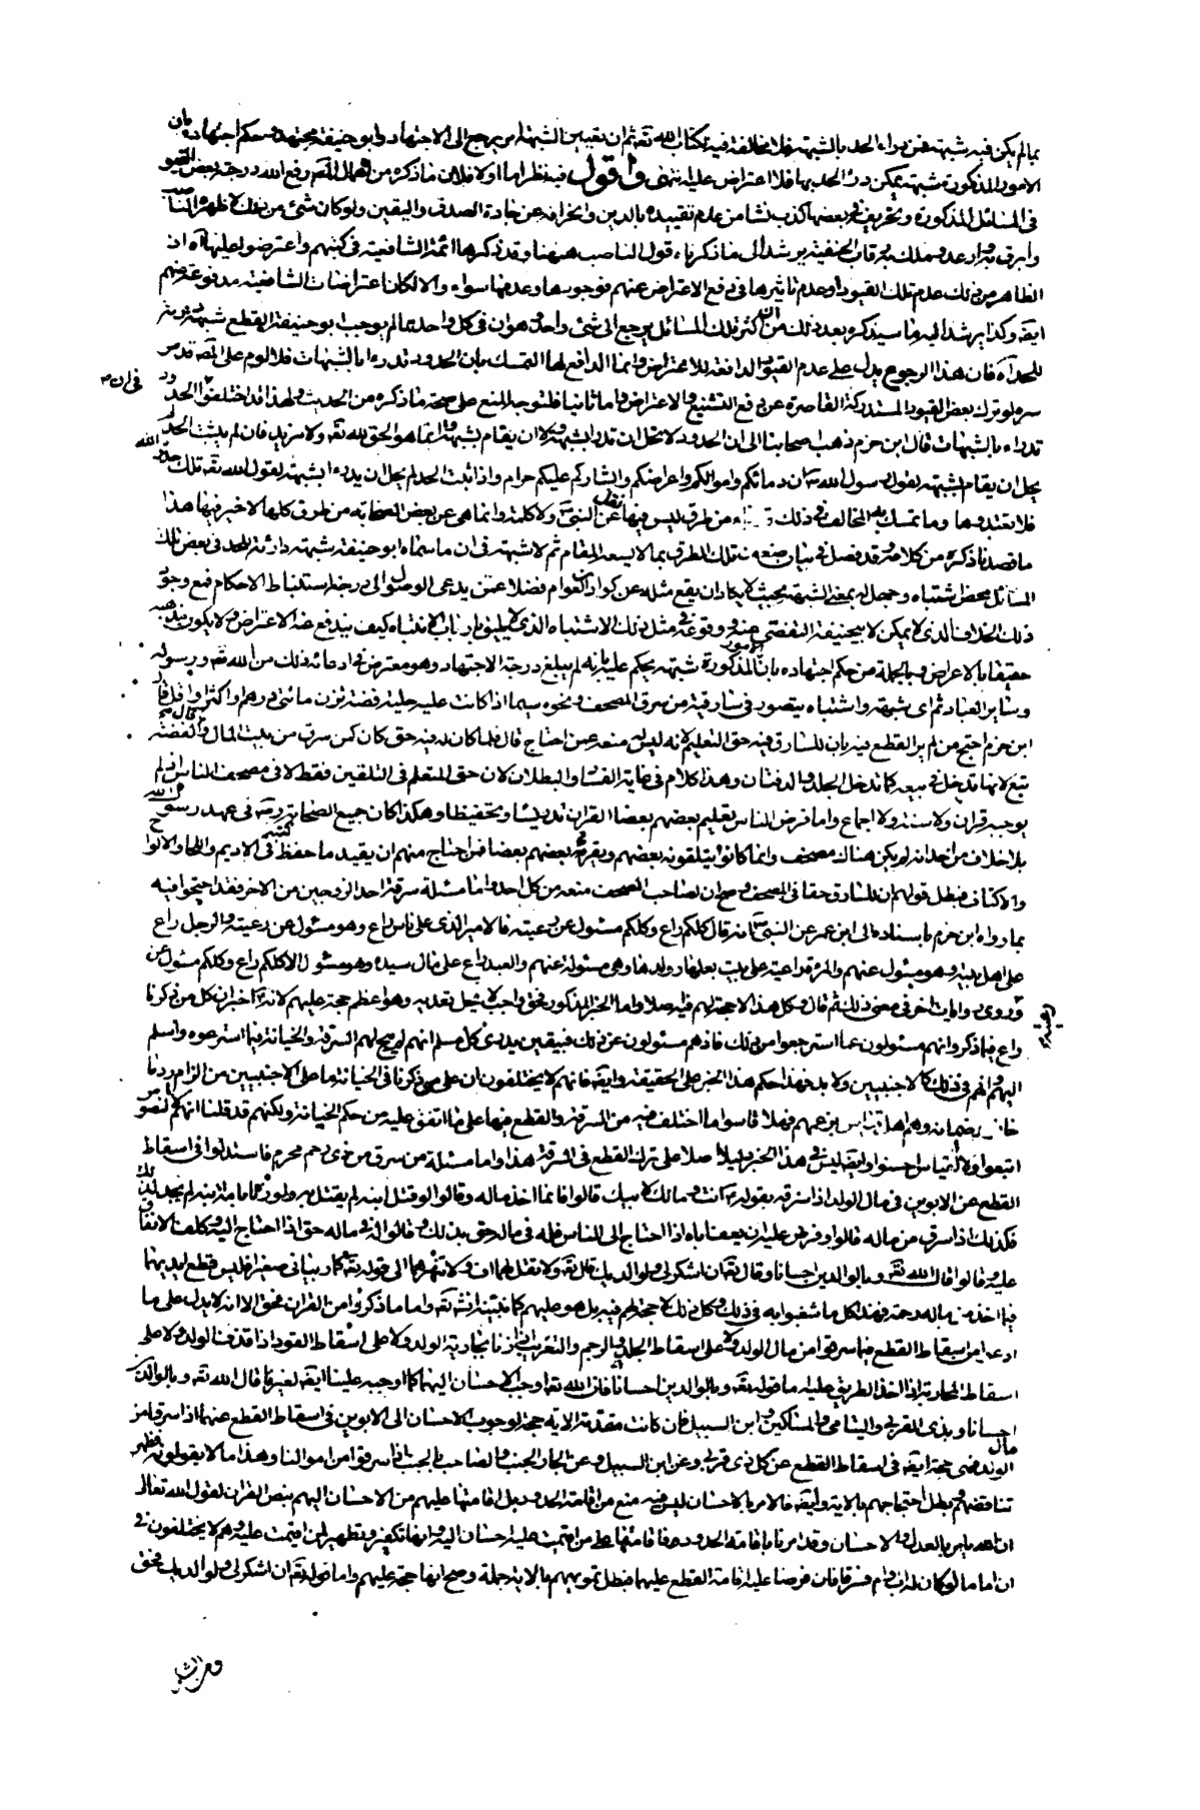 بما لم يكن فيه شبهة فمن يدراء الحد بالشبهة فلا مخالفة فيه لكتاب الله تعه ثم ان تعيين الشبهة امر يرجع الى الاجتهاد وابو حنيفة مجتهد فحكم اجتهاده بان
الامور المذكورة شبهة يمكن درء الحد بها فلا اعتراض عليه انتهى واقول فيه نظر اما اولا فلان ما ذكره من اهمال المص رفع الله درجته بعض القيود
في المسائل المذكورة وتحريف في بعضها كذب نشا من عدم تقييده بالدين وانحرافه عن جادة الصدق واليقين ولو كان شئ من ذلك لاظهره الناصب
وابرق وارعد وملك به رقاب الحنفية يرشد الى ما ذكرناه قول الناصب ههنا وقد ذكرها ائمة الشافعية في كتبهم واعترضوا عليها اه اذ
الظاهر من ذلك عدم تلك القيود او عدم تاثيرها في دفع الاعتراض عنهم فوجودها وعدمها سواء والا لكان اعتراضات الشافعية مدفوعة عنهم
ايضه وكذا يرشد اليه ما سيذكره بعد ذلك من ان كثر تلك المسائل يرجع الى شئ واحد وهو ان في كل واحد مما لم يوجب ابو حنيفة القطع شبهة دارئة
للحد اه فان هذا الرجوع يدل على عدم القيود الدافعة للاعتراض وانما الدافع لها التمسك بان الحدود تدرء بالشبهات فلا لوم على المص قدس
سره لو ترك بعض القيود المستدركة القاصرة عن دفع التشنيع والاعتراض واما ثانيا فلتوجه المنع على صحة ما ذكره من الحديث ولهذا قد اختلفوا في ان الحدود
تدراء بالشبهات قال ابن حزم ذهب اصحابنا الى ان الحدود لا يحل ان تدرء بشبهة ولا ان يقام بشبهة وانما هو الحق لله تعه ولا مزيد فان لم يثبت الحد لم
يحل ان يقام بشبهة لقول رسول الله ص ان دمائكم واموالكم واعراضكم وابشاركم عليكم حرام واذا ثبت الحد لم يحل ان يدرء بشبهة لقول الله تعه تلك حدود الله
فلا تعتدوها وما تمسك به المخالف في ذلك جاء من طرق ليس فيها نقل عن النبي ص ولا كلمة وانما هي عن بعض الصحابة من طرق كلها لا خير فيها هذا
ما قصدنا ذكره من كلامه وقد فصل في بيان ضعف تلك الطرق بما لا يسعه المقام ثم لا شبهة في ان ما سماه ابو حنيفة شبهة دارئة للحد في بعض تلك
المسائل محض اشتباه وجهل له بمعنى الشبهة بحيث لا يكاد ان يقع مثله عن كوادن العوام فضلا عمن يدعى الوصول الى درجة استنباط الاحكام فمع وجود
ذلك الخلاف الذي لا يمكن لابي حنيفة التفصي عنه ووقوعه في مثل ذلك الاشتباه الذي لا يليق بارباب الانتباه كيف يندفع عنه الاعتراض ولا يكون مذهبه
حقيقا بالاعراض وبالجملة من حكم اجتهاده بان الامور المذكورة شبهة يحكم عليه بانه لم يبلغ درجة الاجتهاد وهو معترض في ادعائه ذلك من الله تعه ورسوله
وساير العباد ثم اى شبهة واشتباه يتصور في سارقية من سرق المصحف ونحوه سيما اذا كانت عليه حلية فضة تزن مائتى درهم واكثر او اقل قال
ابن حزم احتج من لم ير القطع فيه بان للسارق فيه حق التعليم لانه ليس منعه عمن احتاج قال فلما كان له فيه حق كان كمن سرق من بيت المال والفضة
تبع لانها تدخل في بيعه كما تدخل الجلد والدفتان وهذا كلام في غاية الفساد والبطلان لان حق المتعلم في التلقين فقط لا في مصحف الناس اذ لم
يوجبه قران ولا سنة ولا اجماع وانما فرض الناس تعليم بعضهم بعضا القران تدريسا وتحفيظا وهكذا كان جميع الصحابة رض في عهد رسول الله ص
بلا خلاف من احد انه لم يكن هناك مصحف وانما كانوا يتلقونه بعضهم ويقرئه بعضهم بعضا فمن احتاج منهم ان يقيد ما حفظ كتبه في الاديم واللخاف والالواح
والاكتاف فبطل قولهم ان للسارق حقا في المصحف وصح ان لصاحب المصحف منعه من كل احد واما مسئلة سرقة احد الزوجين من الاخر فقد احتجوا فيه
بما رواه ابن حزم باسناده الى ابن عمر عن النبي ص انه قال كلكم راع وكلكم مسئول عن رعيته فالامير الذي على الناس راع وهو مسئول عن رعيته والرجل راع
على اهل بيته وهو مسئول عنهم والمرءة راعية على بيت بعلها وولدها وهي مسئولة عنهم والعبد راع على مال سيده وهو مسئول الا كلكم راع وكلكم مسئول عن رعيته
وروى روايات اخر في معنى ذلك ثم قال وكل هذا لا حجة لهم فيه اصلا واما الخبر المذكور فحق واجب لا يحل تعديه وهو اعظم حجة عليهم لانه ع اخبر ان كل من ذكرنا
راع فيما ذكر وانهم مسئولون عما استرعوا من ذلك فاذ هم مسئولون عن ذلك فبيقين يدرى كل مسلم انهم لم يبح لهم السرقة والخيانة فيما استرعوه واسلم
اليهم وانهم في ذلك كالاجنبيين ولا بد فهذا حكم هذا الخبر على الحقيقة وايضه فانهم لا يختلفون ان على من ذكرنا في الخيانة ما على الاجنبيين من الزام رد ما
خان وضمانه وهم اهل قياس بزعمهم فهلا قاسوا ما اختلف فيه من السرقة والقطع فيها على ما اتفق عليه من حكم الخيانة ولكنهم قد قلنا انهم لا النصوص
اتبعوا ولا القياس احسنوا وايضه ليس في هذا الخبر دليلا اصلا على ترك القطع في السرقة هذا واما مسئلة من سرق من ذي رحم محرم فاستدلوا في اسقاط
القطع عن الابوين في مال الولد اذا سرقه بقوله ع انت ومالك لابيك قالوا فانما اخذ ماله وقالوا لو قتل ابنه لم يقتل به ولو زنا بامة ابنه لم يحد لذلك
فكذلك اذا سرق من ماله قالوا وفرض عليه ان يعف اباه اذا احتاج الى الناس فله في ماله حق بذلك وقالوا له في ماله حق اذا احتاج اليه وكلف الانفاق
عليه وقالوا قال الله تعه وبالوالدين احسانا وقال تعه ان اشكر لي ولوالديك قال تعه ولا تقل لهما اف ولا تنهرهما الى قوله تعه كما ربياني صغيرا فليس قطع ايديهما
فيما اخذ من ماله رحمة فهذا كل ما شغبوا به في ذلك وكل ذلك لا حجة لهم فيه بل هو عليهم كما نبينه انش تعه واما ما ذكروا من القران فحق الا انه لا يدل على ما
ادعوه من اسقاط القطع فيما سرقوا من مال الولد ولا على اسقاط الجلد والرجم والتغريب اذا زنا بجارية الولد ولا على اسقاط القود اذا قذف الولد ولا على
اسقاط المحاربة اذا اخذ الطريق عليه اما قوله تعه وبالوالدين احسانا فان الله تعه اوجب الاحسان اليهما كما اوجبه علينا ايضه لغيرهما قال الله تعه وبالوالدين
احسانا وبذى القربى واليتامى والمساكين وابن السبيل فان كانت مقدمة الاية حجة لوجوب الاحسان الى الابوين في اسقاط القطع عنهما اذا سرقا من مال
الولد فهي حجة ايضه في اسقاط القطع عن كل ذى قربى وعن ابن السبيل وعن الجار الجنب والصاحب بالجنب اذا سرقوا من اموالنا وهذا ما لا يقولونه فظهر
تناقضهم وبطل احتجاجهم بالاية وايضه فالامر بالاحسان ليس فيه منع من اقامة الحدود بل اقامتها عليهم من الاحسان اليهم بنص القران لقول الله تعالى
ان الله يامر بالعدل والاحسان وقد امرنا باقامة الحدود فاقامتها على من اقيمت عليه احسان اليه وانها تكفير وتطهير لمن اقيمت عليه وهم لا يختلفون في
ان اماما لو كان له اب وام فسرقا فان فرضا عليه اقامة القطع عليهما فبطل تمويههم بالاية جملة وصح انها حجة عليهم واما قوله تعه ان اشكر لي ولوالديك فحق